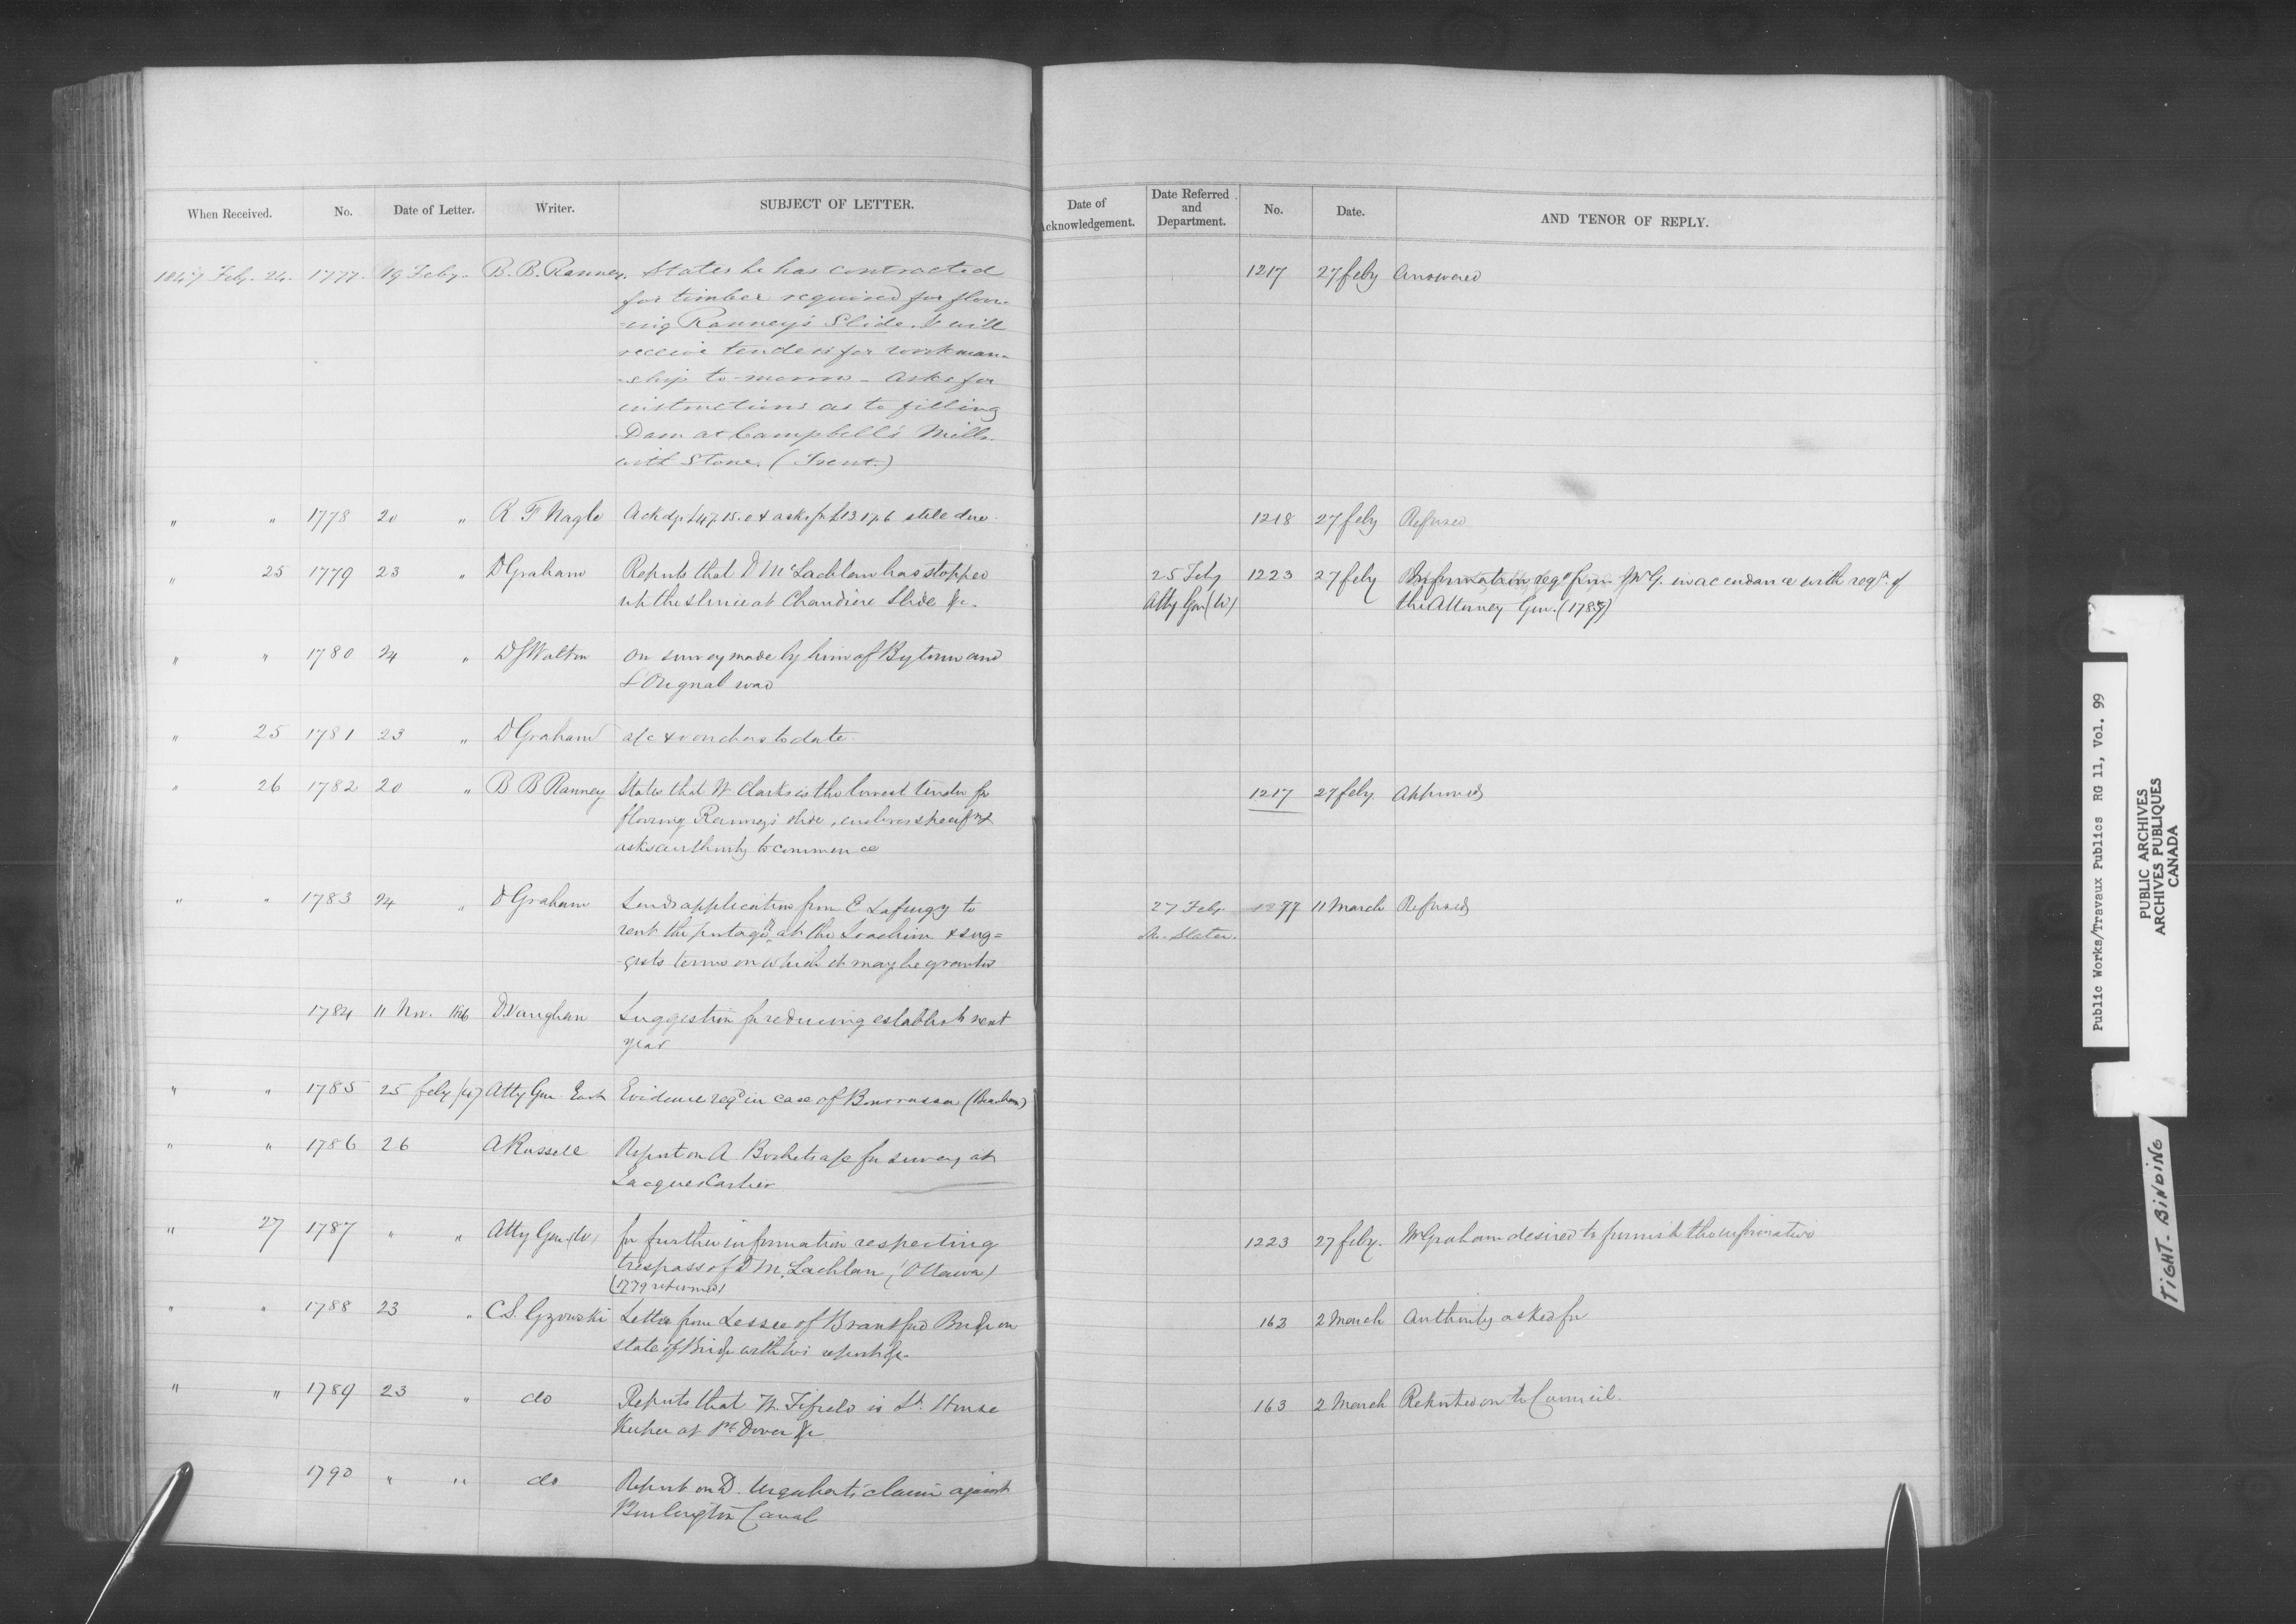 When Received. No. Date of Letter. Writer. SUBJECT OF LETTER. Date of Acknowledgement. Date Referred and Department. No. Date. AND TENOR OF REPLY.
1847 Feby. 24. 1777. 19 Feby. B. B. Ranney. States he has contracted 1217 27 feby Answered
for timber required for floor-
-ing Ranney's Slide, & will
receive tenders for workman-
-ship to-morrow - Asks for
instructions as to filling
Dam at Campbell's Mills.
with Stone. (Trent.)
" " 1778 20 " R F Nagle Ackdg £47.15.0 & asks for £13 17.6 still due. 1218 27 feby Refused
" 25 1779 23 " D Graham Reports that D McLachlan has stopped 25 Feby 1223 27 feby Information reqd from Mr G. in accordance with reqt. of
up the sluice at Chaudiere Slide &c. Atty Gen (W) the Attorney Gen. (1787)
" " 1780 24 " D S Walton On survey made by him of Bytown and
L'Orignal road
" 25 1781 23 " D Graham a/c & vouchers to date.
" 26 1782 20 " B B Ranney States that W Clarks is the lowest tender for 1217 27 feby. Approved
flooring Ranney's slide, encloses specifn &
asks authority to commence
" " 1783 24 " D Graham Sends application from E to 27 Feby. 1277 11 March Refused
rent the portage at the Joachim & sug= Mr. Slater.
-gests terms on which it may be granted
1784 11 Nov. 1846 D. Vaughan Suggestion for reducing establisht next
year
" " 1785 25 feby (47) Atty Gen East Evidence reqd in case of Bourrassa (Beauhars)
" " 1786 26 A Russell Report on A a/c for survey at
Jacques Cartier
" 27 1787 " " Atty Gen (W) for further information respecting 1223 27 feby. Mr Graham desired to furnish the information
trespass of D McLachlan (Ottawa)
(1779 returned)
" " 1788 23 " C.S. Gzowski Letter from Lessee of Brantford Bridge on 163 2 March Authority asked for
state of Bridge with his report &c.
" " 1789 23 " do Reports that W. Fifield is Lt. House 163 2 March Reported on to Council.
Keeper at Pt Dover &c
1790 " " do Report on D. Urquharts claim against
Burlington Canal
Public Works/Travaux Publics RG 11, Vol. 99
PUBLIC ARCHIVES
ARCHIVES PUBLIQUES
CANADA
TIGHT-BINDING